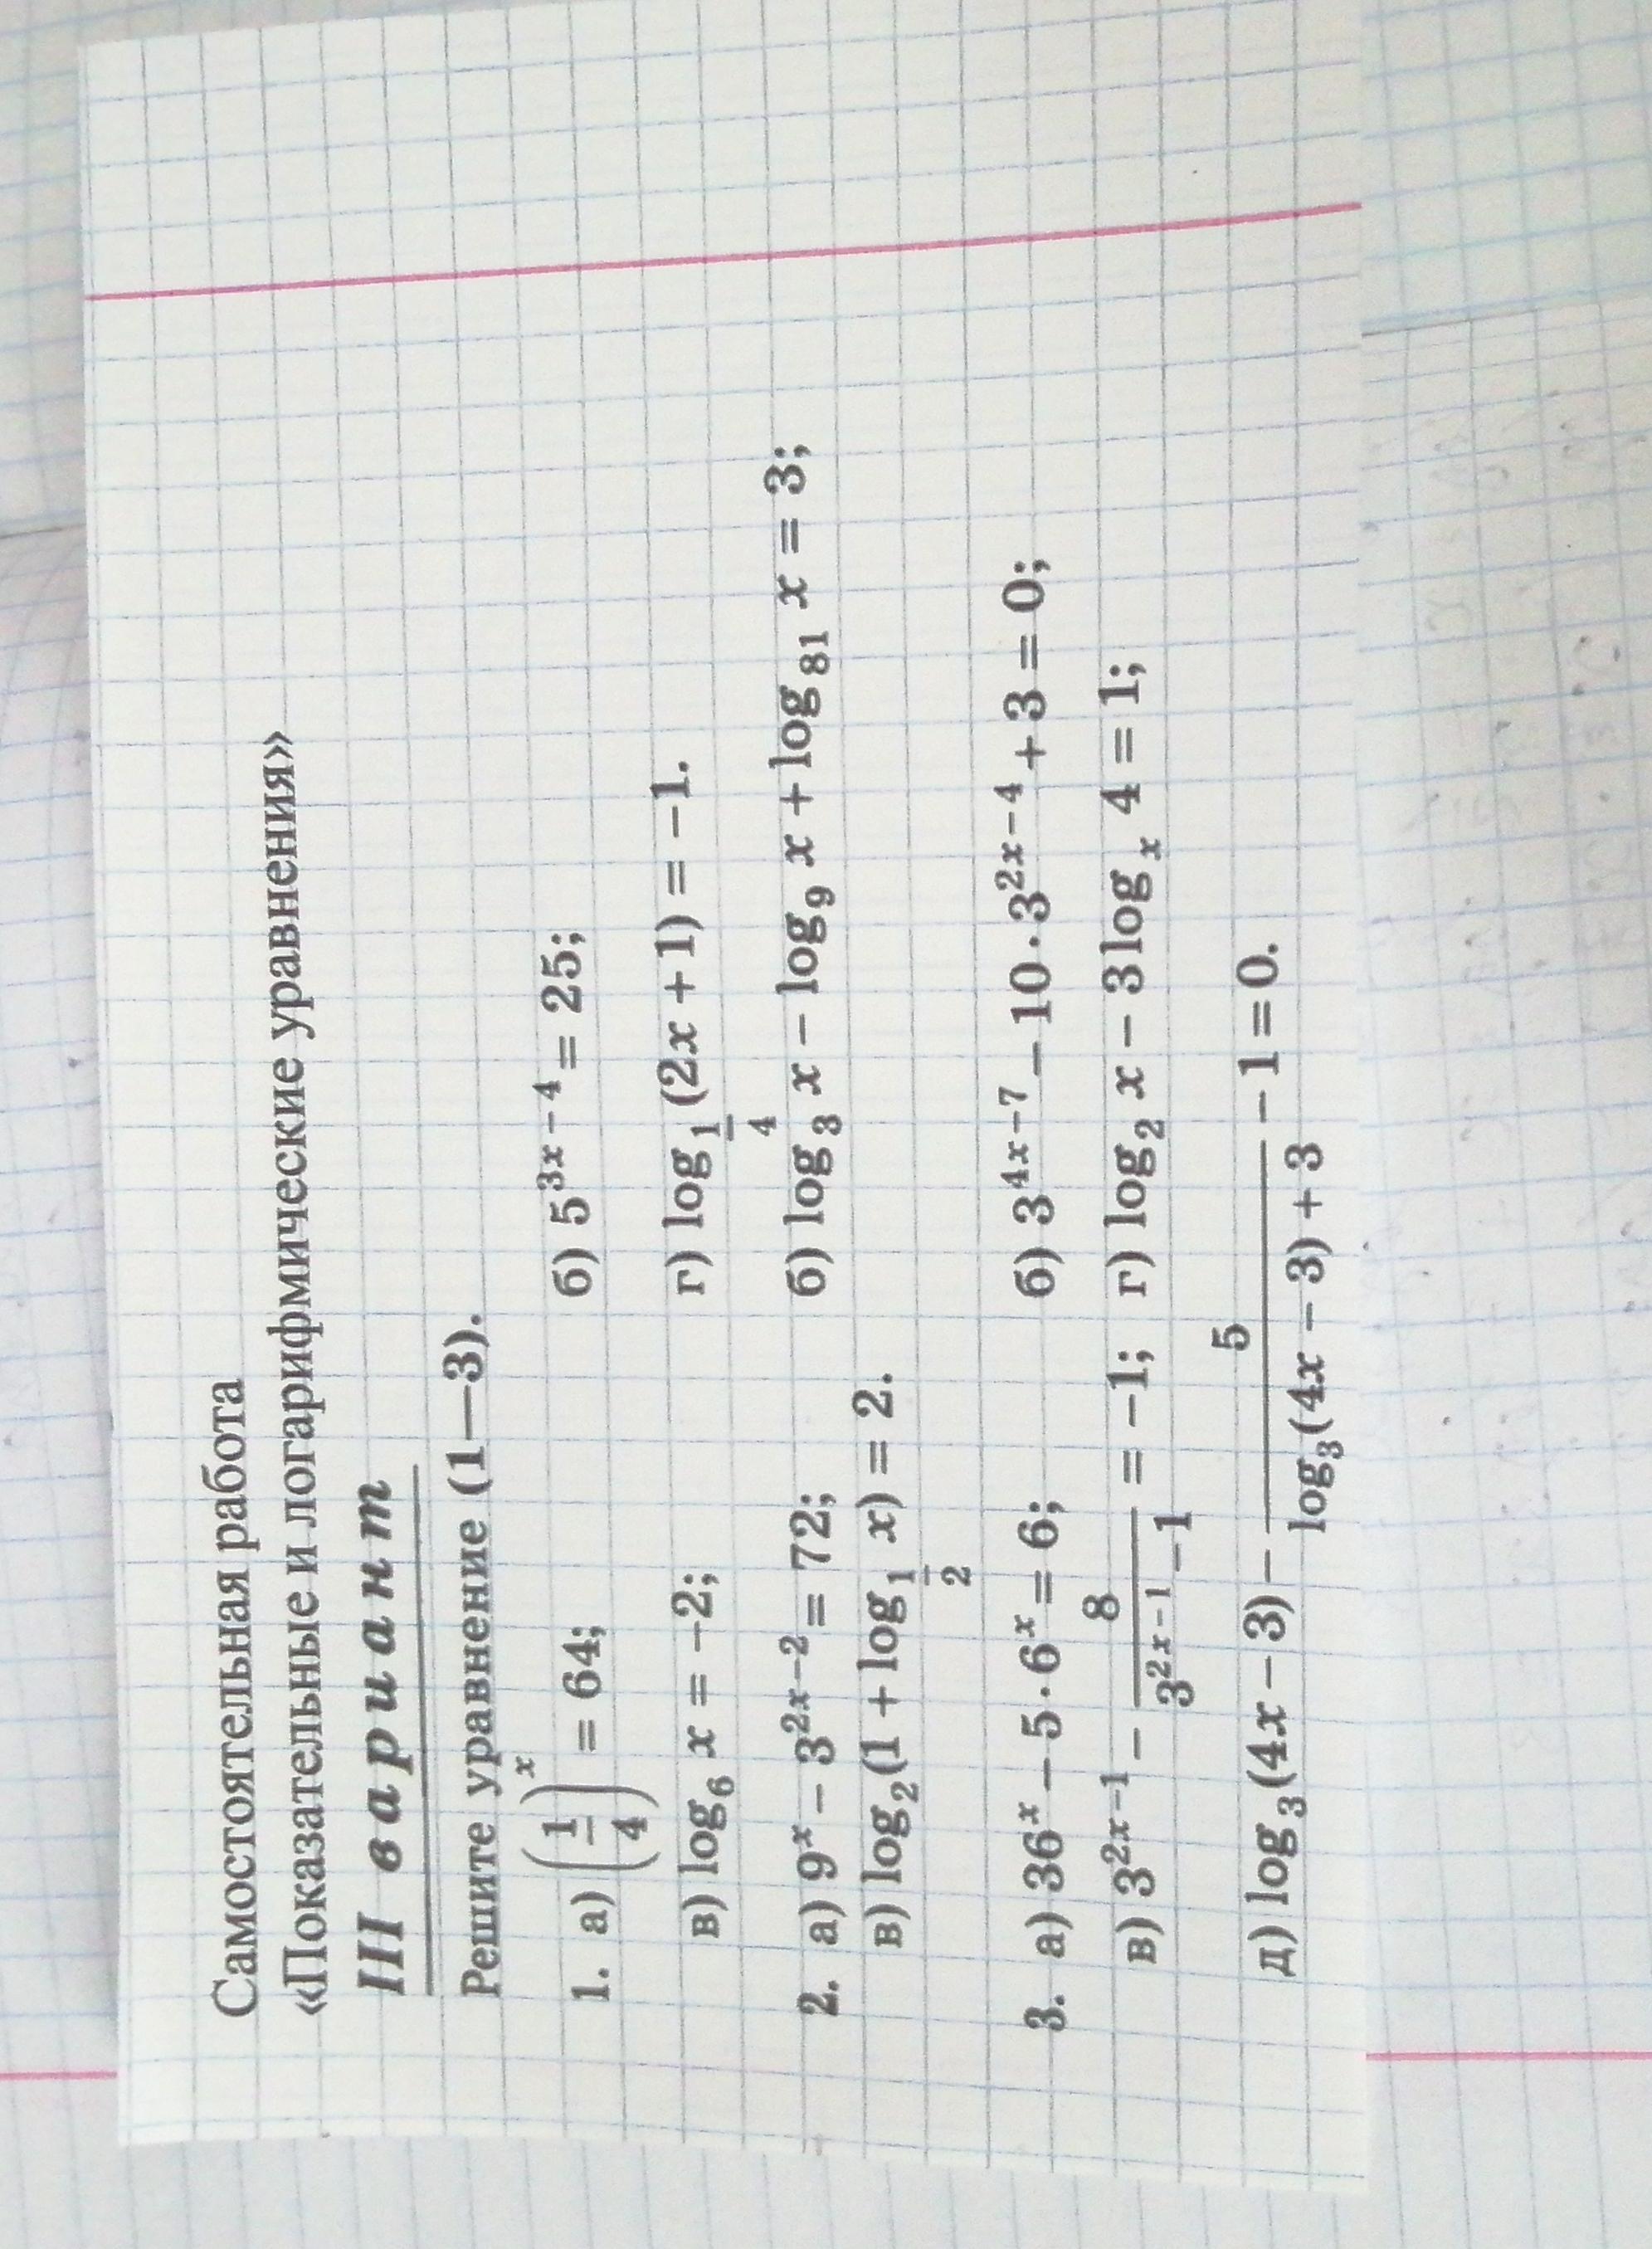 Самостоятельная работа
«Показательные и логарифмические уравнения»
III вариант
Решите уравнение (1—3).
1. а) (1/4)^x = 64; б) 5^(3x − 4) = 25;
в) log_6 x = −2; г) log_(1/4) (2x + 1) = −1.
2. а) 9^x − 3^(2x − 2) = 72; б) log_3 x − log_9 x + log_81 x = 3;
в) log_2 (1 + log_(1/2) x) = 2.
3. а) 36^x − 5 · 6^x = 6; б) 3^(4x − 7) − 10 · 3^(2x − 4) + 3 = 0;
в) 3^(2x − 1) − 8/(3^(2x − 1) − 1) = −1; г) log_2 x − 3 log_x 4 = 1;
д) log_3 (4x − 3) − 5/(log_3 (4x − 3) + 3) − 1 = 0.